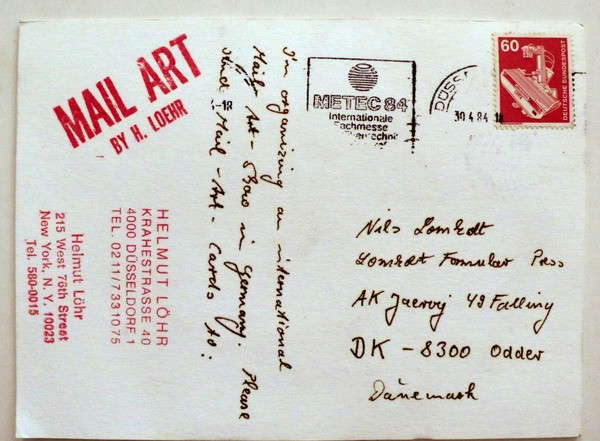 MAIL ART
BY H. LOEHR
I'm organizing an international
Mail-Art-Show in Germany. Please
Mail-Art-Cards to:
HELMUT LÖHR
KRAHESTRASSE 40
4000 DÜSSELDORF 1
TEL. 0211/7331075
Helmut Löhr
215 West 76th Street
New York, N.Y. 10023
Tel. 580-0015
METEC 84
Internationale
Fachmesse
-18
DÜSS
30.4.84
60
DEUTSCHE BUNDESPOST
Nils Lomholt
Lomholt Formular Press
AK Jaervej 49 Falling
DK - 8300 Odder
Dänemark